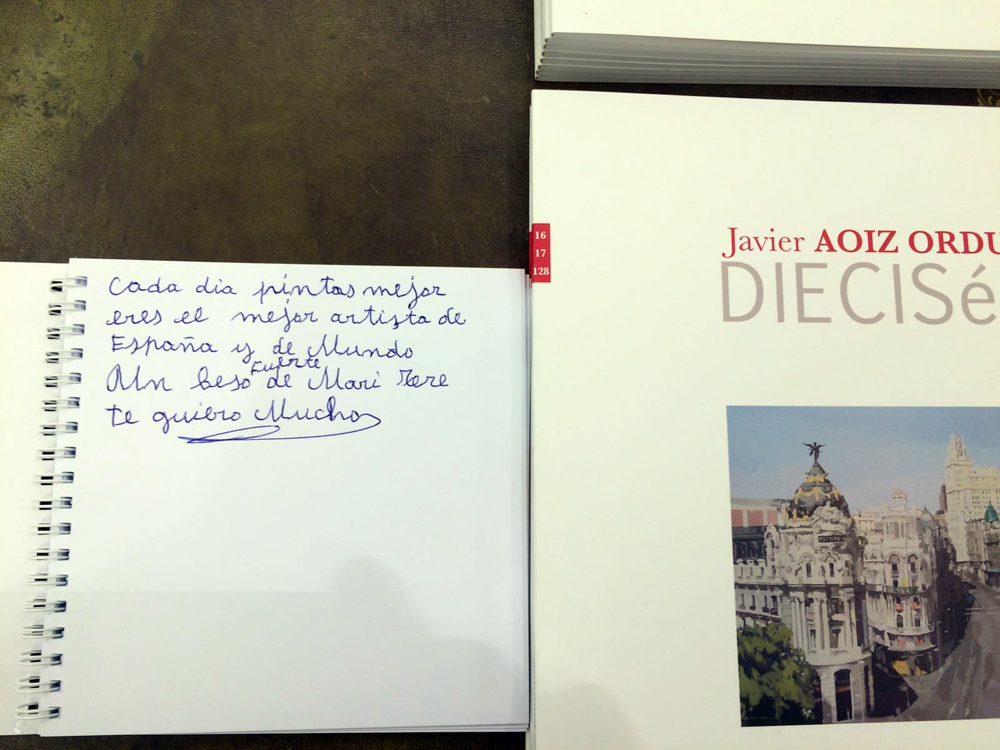 Cada dia pintas mejor
eres el mejor artista de
España y de Mundo
Un beso fuerte de Mari Tere
te quiero Mucho
16
17
128
Javier AOIZ ORDU
DIECISé